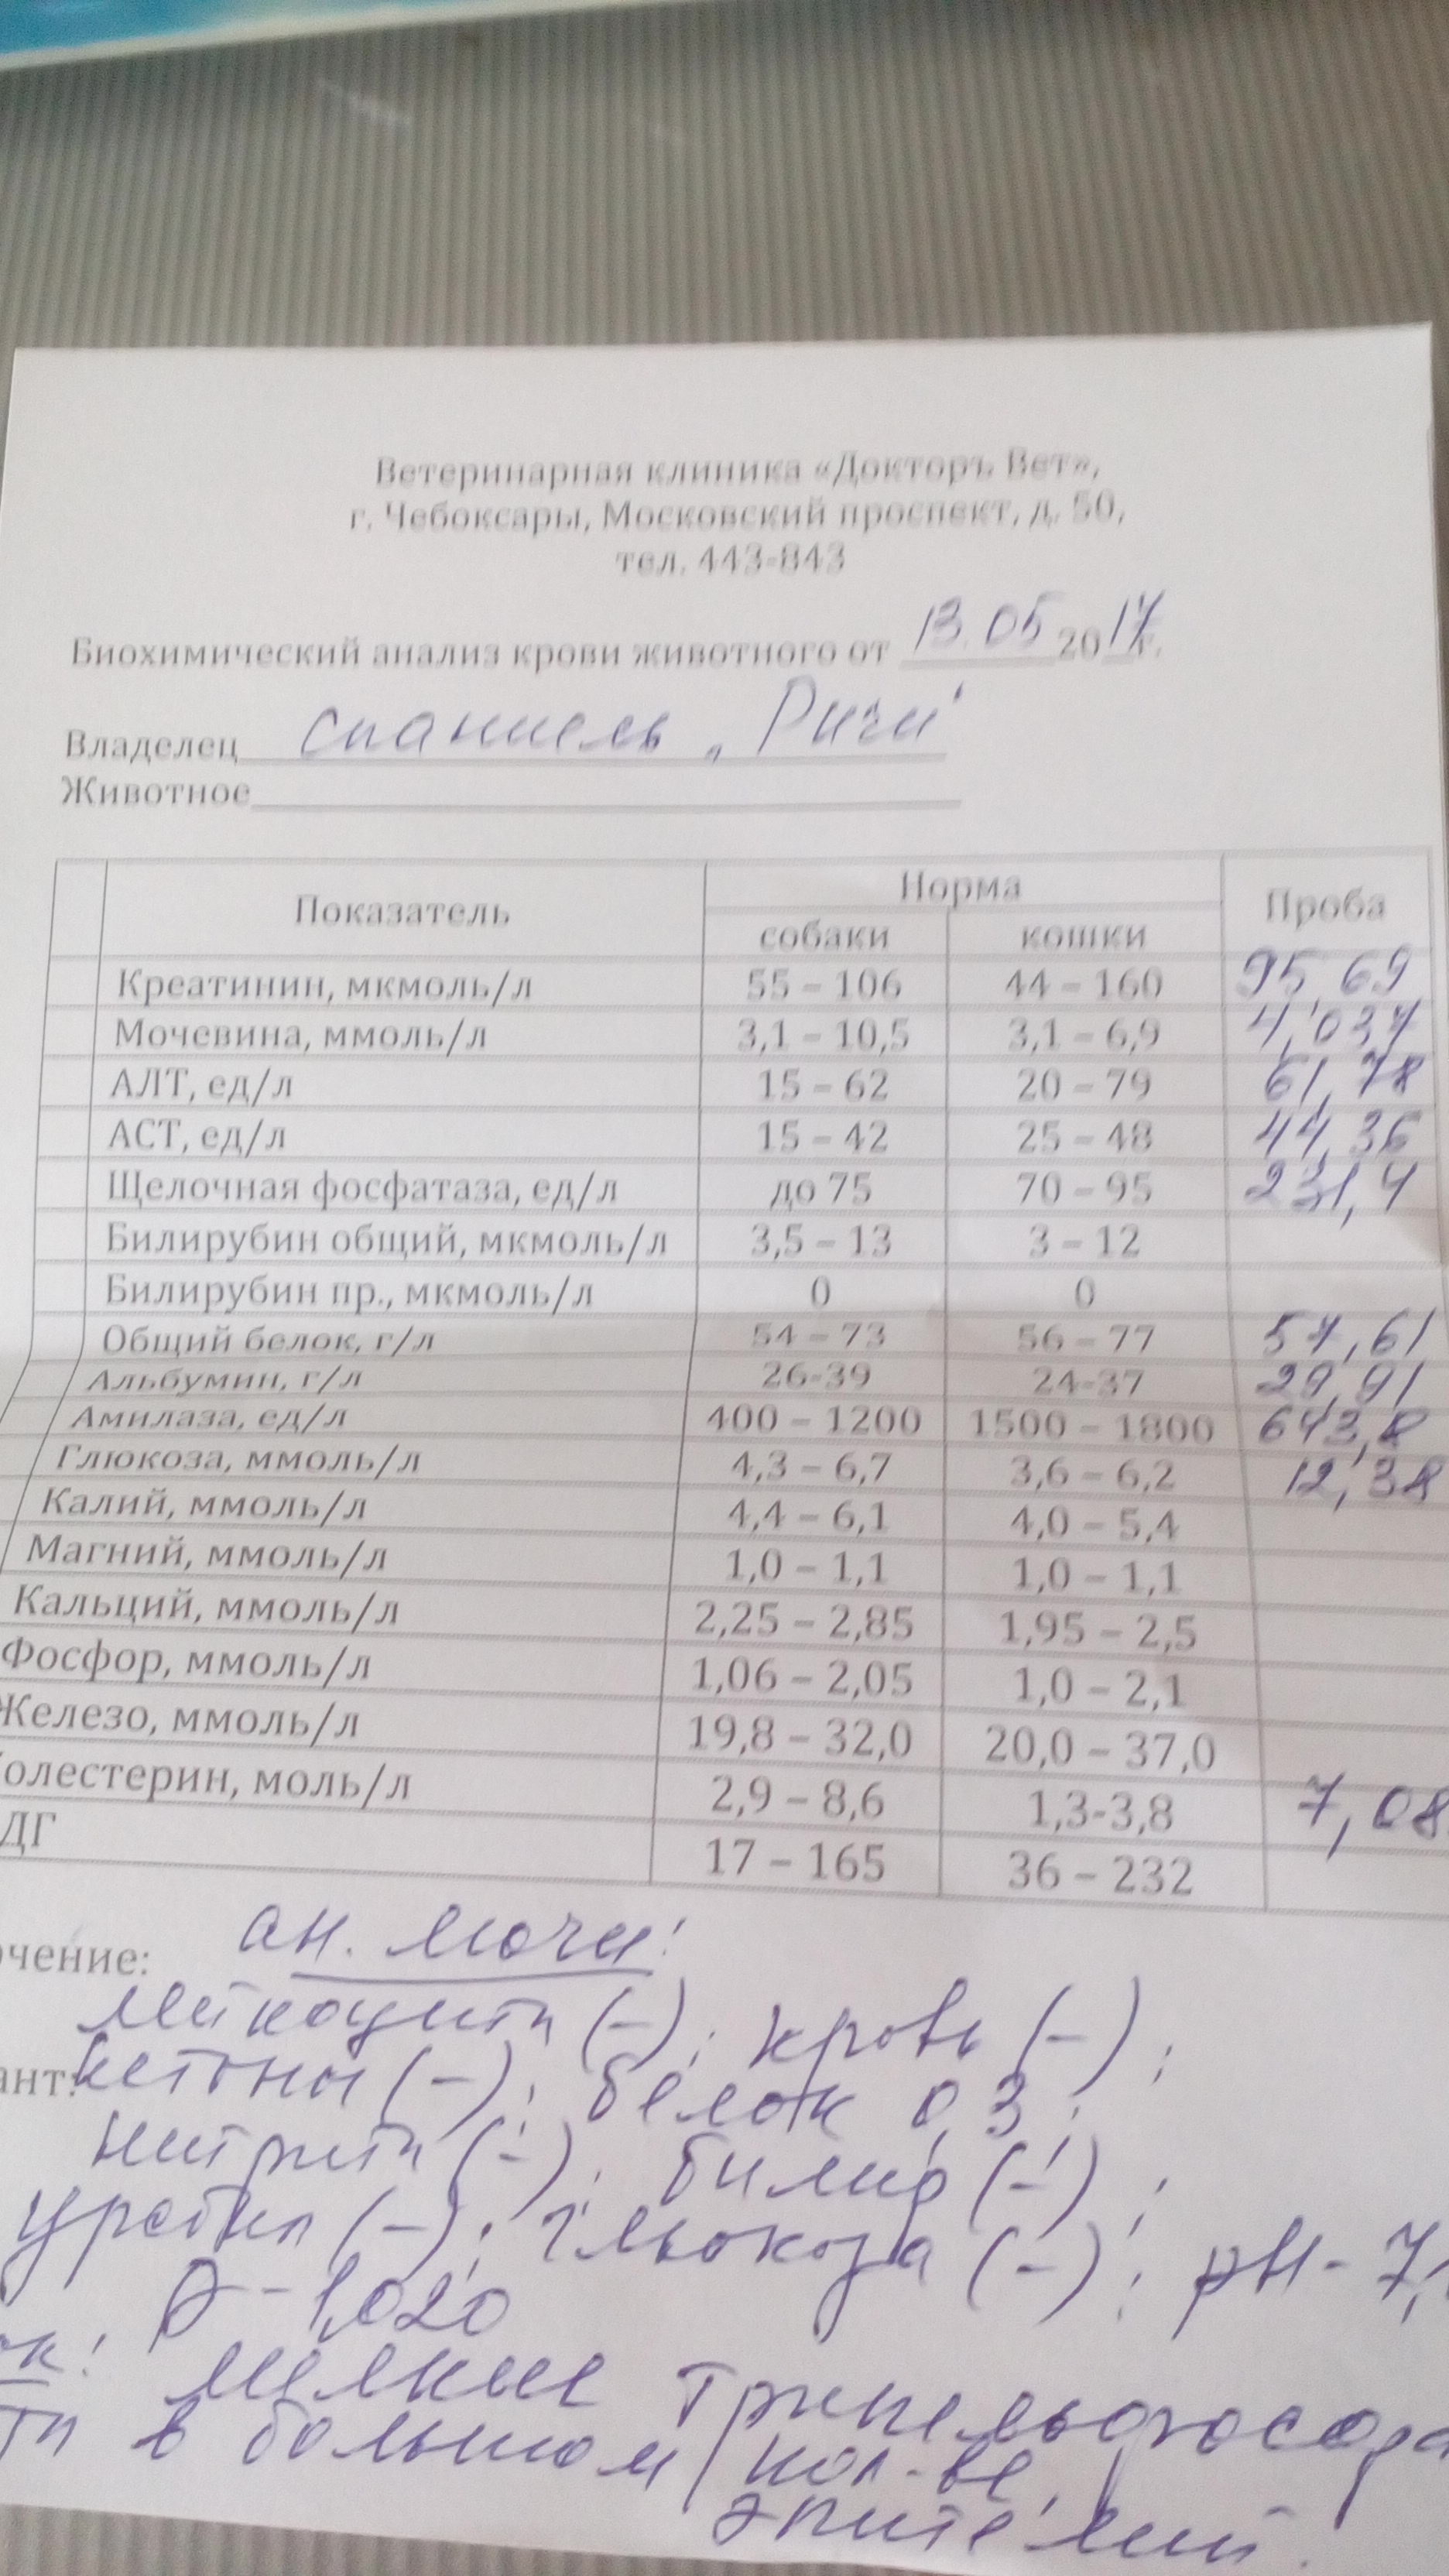 Ветеринарная клиника «Докторъ Вет»,
г. Чебоксары, Московский проспект, д. 50,
тел. 443-843
Биохимический анализ крови животного от 13.05 2017г.
Владелец спаниель „Ричи"
Животное
Показатель Норма Проба
собаки кошки
Креатинин, мкмоль/л 55 – 106 44 – 160 95,69
Мочевина, ммоль/л 3,1 – 10,5 3,1 – 6,9 4,037
АЛТ, ед/л 15 – 62 20 – 79 61,78
АСТ, ед/л 15 – 42 25 – 48 44,36
Щелочная фосфатаза, ед/л до 75 70 – 95 231,4
Билирубин общий, мкмоль/л 3,5 – 13 3 – 12
Билирубин пр., мкмоль/л 0 0
Общий белок, г/л 54 – 73 56 – 77 57,61
Альбумин, г/л 26-39 24-37 29,91
Амилаза, ед/л 400 – 1200 1500 – 1800 643,8
Глюкоза, ммоль/л 4,3 – 6,7 3,6 – 6,2 12,38
Калий, ммоль/л 4,4 – 6,1 4,0 – 5,4
Магний, ммоль/л 1,0 – 1,1 1,0 – 1,1
Кальций, ммоль/л 2,25 – 2,85 1,95 – 2,5
Фосфор, ммоль/л 1,06 – 2,05 1,0 – 2,1
Железо, ммоль/л 19,8 – 32,0 20,0 – 37,0
олестерин, моль/л 2,9 – 8,6 1,3-3,8 7,08
ДГ 17 – 165 36 – 232
чение: ан. мочи:
лейкоциты (–); кровь (–);
ант: кетоны (–); белок 0,3;
нитриты (–); билир (–);
уробил (–); глюкоза (–); pH - 7,
D – 1,020
ок: мелкие трипельфосфа
ты в большом кол-ве,
эпителий.